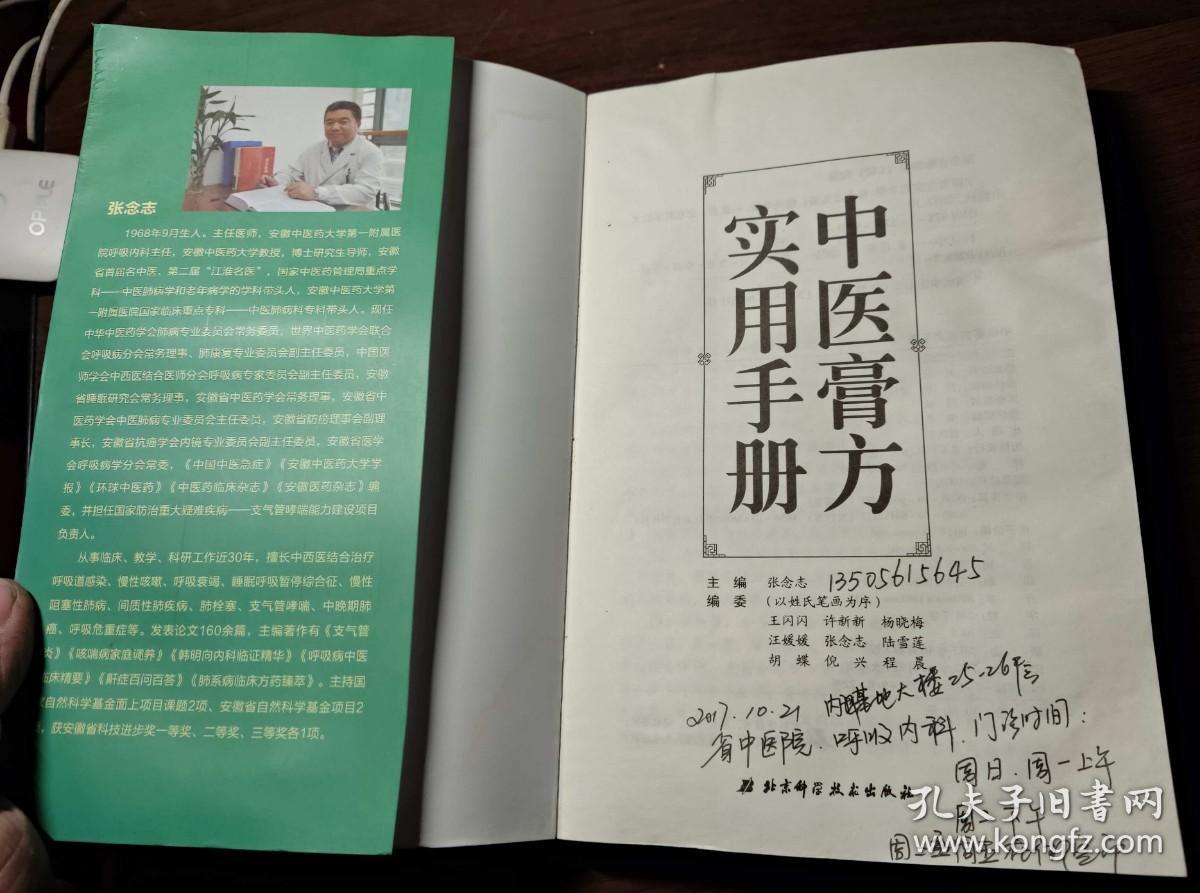 OPPLE
张念志
1968年9月生人。主任医师,安徽中医药大学第一附属医
院呼吸内科主任,安徽中医药大学教授,博士研究生导师,安徽
省首届名中医、第二届“江淮名医”,国家中医药管理局重点学
科——中医肺病学和老年病学的学科带头人,安徽中医药大学第
一附属医院国家临床重点专科——中医肺病科专科带头人。现任
中华中医药学会肺病专业委员会常务委员,世界中医药学会联合
会呼吸病分会常务理事、肺康复专业委员会副主任委员,中国医
师学会中西医结合医师分会呼吸病专家委员会副主任委员,安徽
省睡眠研究会常务理事,安徽省中医药学会常务理事,安徽省中
医药学会中医肺病专业委员会主任委员,安徽省防痨理事会副理
事长,安徽省抗癌学会内镜专业委员会副主任委员,安徽省医学
会呼吸病学分会常委,《中国中医急症》《安徽中医药大学学
报》《环球中医药》《中医药临床杂志》《安徽医药杂志》编
委,并担任国家防治重大疑难疾病——支气管哮喘能力建设项目
负责人。
从事临床、教学、科研工作近30年,擅长中西医结合治疗
呼吸道感染、慢性咳嗽、呼吸衰竭、睡眠呼吸暂停综合征、慢性
阻塞性肺病、间质性肺疾病、肺栓塞、支气管哮喘、中晚期肺
癌、呼吸危重症等。发表论文160余篇,主编著作有《支气管
炎》《咳喘病家庭调养》《韩明向内科临证精华》《呼吸病中医
临床精要》《鼾症百问百答》《肺系病临床方药臻萃》。主持国
自然科学基金面上项目课题2项、安徽省自然科学基金项目2
,获安徽省科技进步奖一等奖、二等奖、三等奖各1项。
中医膏方
实用手册
主编 张念志 13505615645
编委 (以姓氏笔画为序)
王闪闪 许新新 杨晓梅
汪媛媛 张念志 陆雪莲
胡蝶 倪兴 程晨
2017.10.21 内 基地大楼25-26
省中医院、呼吸内科、门诊时间:
周日、周一上午
北京科学技术出版社
周 下午
孔夫子旧书网
www.kongfz.com